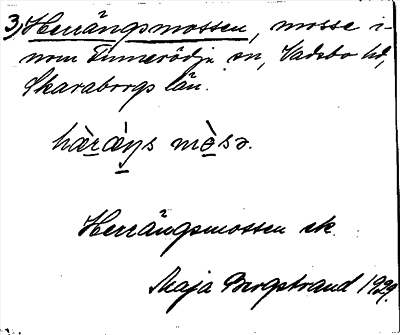 3) Herrängsmossen, mosse i-
nom Finnerödja sn, Vadsbo hd,
Skaraborgs län.
hæ̀ræ̀ŋs mɵ̀sə.
Herrängsmossen ek.
Maja Bergstrand 1929.